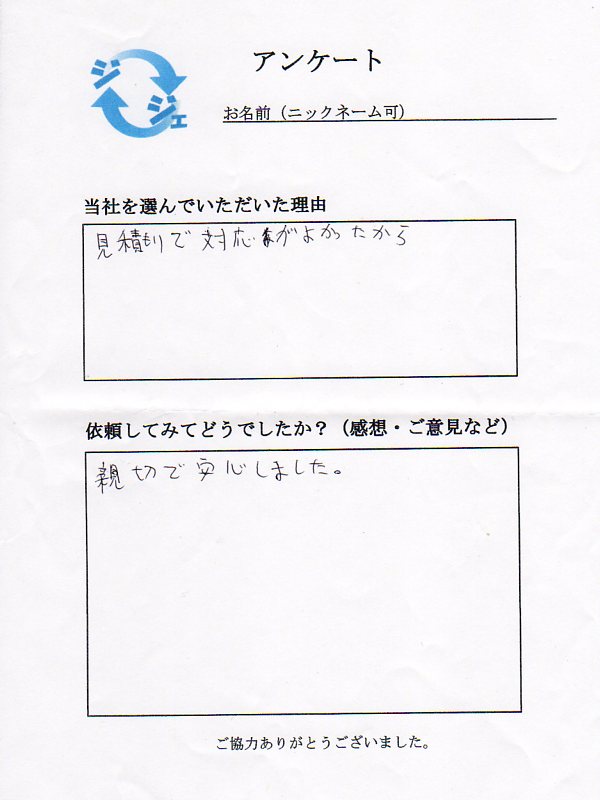 ジジェ
アンケート
お名前（ニックネーム可）
当社を選んでいただいた理由
見積もりで対応がよかったから
依頼してみてどうでしたか？（感想・ご意見など）
親切で安心しました。
ご協力ありがとうございました。